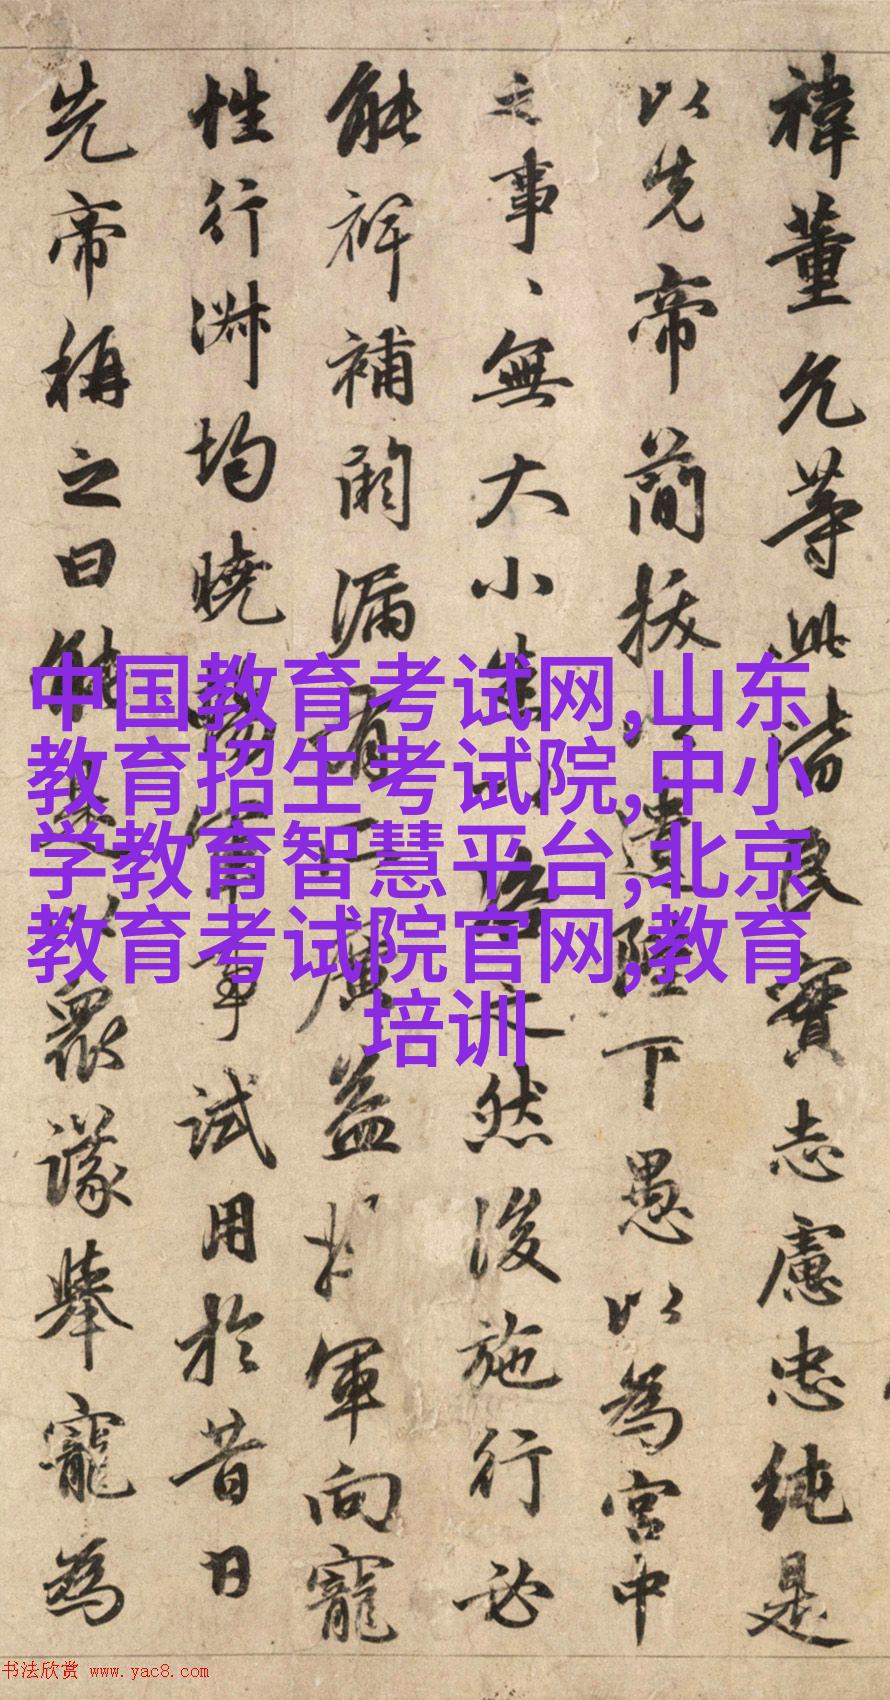 禕董允等此皆良實志慮忠純是
以先帝簡拔以遺陛下愚以為宮中
之事、無大小悉以咨之然後施行必
能裨補闕漏有所廣益將軍向寵
性行淋均曉暢軍事試用於昔日
先帝稱之曰能是以眾議舉寵為
中国教育考试网,山东
教育招生考试院,中小
学教育智慧平台,北京
教育考试院官网,教育
培训
书法欣赏 www.yac8.com